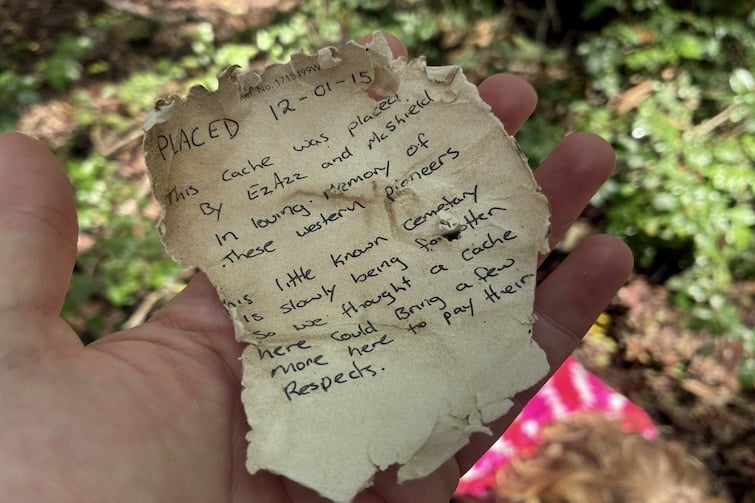 No. 1715499W
PLACED 12-01-15
This cache was placed.
By EzAzz and McShield
In loving memory of
these western pioneers
This little known cemetary
is slowly being forgotten
So we thought a cache
here could Bring a few
more here to pay their
Respects.